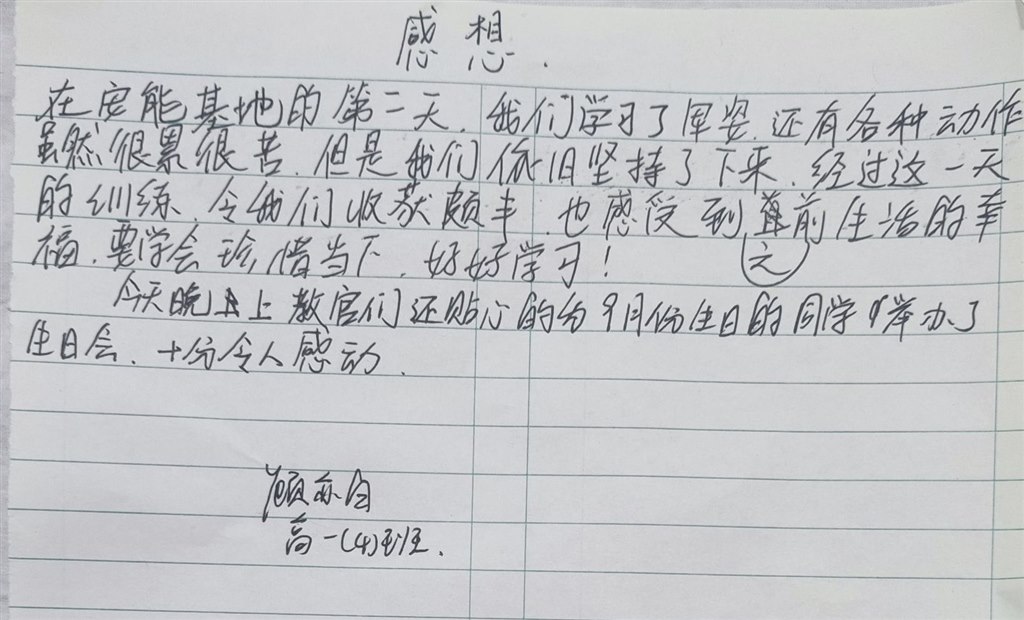 感想.
在安能基地的第二天,我们学习了军姿,还有各种动作
虽然很累很苦,但是我们依旧坚持了下来,经过这一天
的训练,令我们收获颇丰,也感受到之前生活的幸
福,要学会珍惜当下,好好学习!
今天晚上教官们还贴心的给9月份生日的同学举办了
生日会,十分令人感动.
顾亦白
高一(4)班.